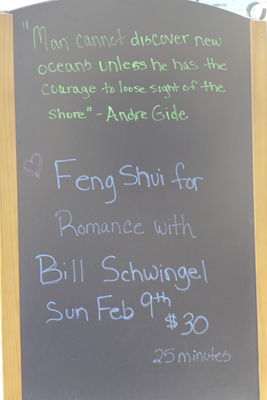 "Man cannot discover new
oceans unless he has the
courage to loose sight of the
shore." - Andre Gide
Feng Shui for
Romance with
Bill Schwingel
Sun Feb 9th
$30
25 minutes